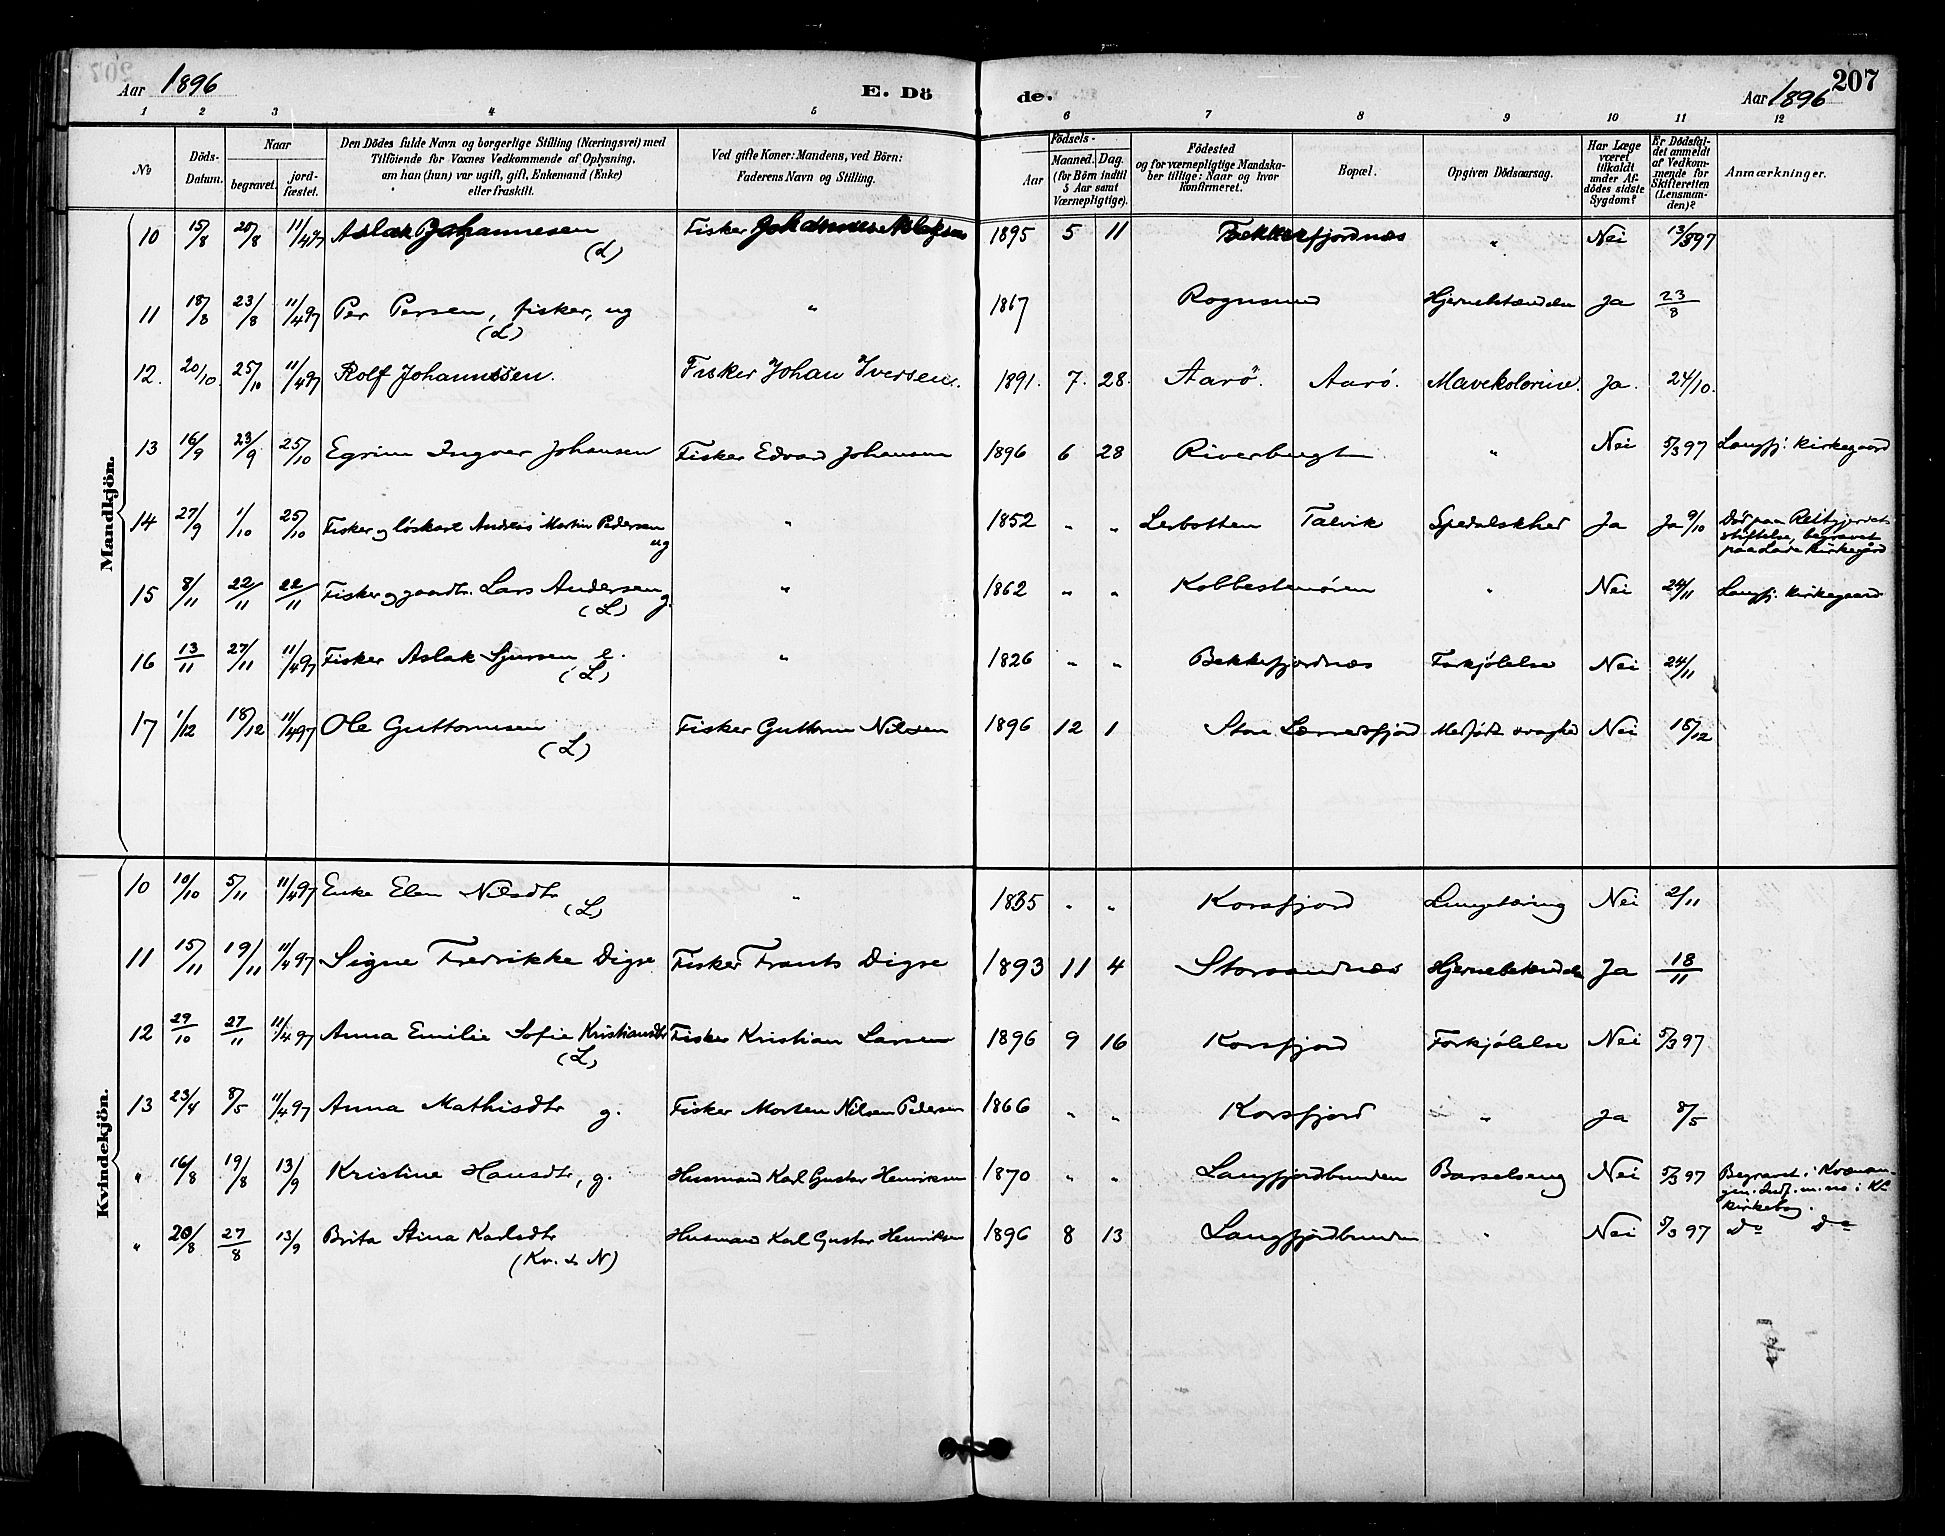 207
Aar 1896
E. Dö
de.
Aar 1896
1 2 3 4 5 6 7 8 9 10 11 12
No
Döds-
Datum.
Naar
begravet.
jord-
fæstet.
Den Dödes fulde Navn og borgerlige Stilling (Næringsvei) med
Tilföiende for Voxnes Vedkommende af Oplysning,
om han (hun) var ugift, gift, Enkemand (Enke)
eller fraskilt.
Ved gifte Koner: Mandens, ved Börn:
Faderens Navn og Stilling.
Födsels-
Aar
Maaned. Dag.
(for Börn indtil
5 Aar samt
Værnepligtige).
Födested
og for værnepligtige Mandska-
ber tillige: Naar og hvor
konfirmeret.
Bopæl.
Opgiven Dödsaarsag.
Har Læge
været
tilkaldt
under Af-
dödes sidste
Sygdom?
Er Dödsfal-
det anmeldt
af Vedkom-
mende for
Skifteretten
(Lensman-
den)?
Anmærkninger.
Mandkjön.
10 15/8 20/8 11/4 97 Aslak Johannesen Fisker Johannes Aslaksen 1895 5 11 Bekkerfjordnæs " Nei 13/3 97
(L)
11 18/8 23/8 11/4 97 Per Persen, fisker, ug " 1867 Rognsund Hjernebetændelse Ja 23/8
(L)
12. 20/10. 25/10 11/4 97 Rolf Johannesen. Fisker Johan Iversen. 1891. 7. 28. Aarö. Aarö. Mavekolerine. Ja. 24/10.
13 16/9 23/9 25/10 Egrim Ingvar Johansen Fisker Edvard Johansen 1896 6 28 Riverbugt " Nei 5/3 97 Langfj. kirkegaard
14 27/9 1/10 25/10 Fisker og löskarl Andreas Martin Pedersen " 1852 " " Lerbotten Talvik Spedalskhed Ja Ja 9/10 Död paa Reitgjerdets
ug stiftelse, begravet
paa Lade kirkegård
15 8/11 22/11 22/11 Fisker og gaardbr. Lars Andersen g. " 1862 " " Kobbestenören " Nei 24/11 Langfj. kirkegaard
(L)
16 13/11 27/11 11/4 97 Fisker Aslak Sjursen e. " 1826 " " Bekkefjordnæs Forkjölelse Nei 24/11
(L)
17 1/12 18/12 11/4 97 Ole Guttormsen Fisker Guttorm Nilsen 1896 12 1 Store Lærredsfjord Medfödt svaghed Nei 15/12
(L)
Kvindekjön.
10 10/10 5/11 11/4 97 Enke Elen Nilsdtr " 1835 " " Korsfjord Lungetæring Nei 2/11
(L)
11 15/11 19/11 11/4 97 Signe Fredrikke Digre Fisker Frants Digre 1893 11 4 Storsandnæs Hjernebetændelse Ja 18/11
12 29/10 27/11 11/4 97 Anna Emilie Sofie Kristiansdtr Fisker Kristian Larsen 1896 9 16 Korsfjord Forkjölelse Nei 5/3 97
(L)
13 23/4 8/5 11/4 97 Anna Mathisdtr g. Fisker Morten Nilsen Pedersen 1866 " " Korsfjord " Ja 8/5
" 16/8 19/8 13/9 Kristine Hansdtr, g. Husmand Karl Gustav Henriksen 1870 " " Langfjordbunden Barselseng Nei 5/3 97 Begravet i Kvænan-
gen. Indf. m. no i Kv.
kirkebog.
" 20/8 27/8 13/9 Brita Aina Karlsdtr Husmand Karl Gustav Henriksen 1896 8 13 Langfjordbunden " Nei 5/3 97 Do Do
(Kv. & N)